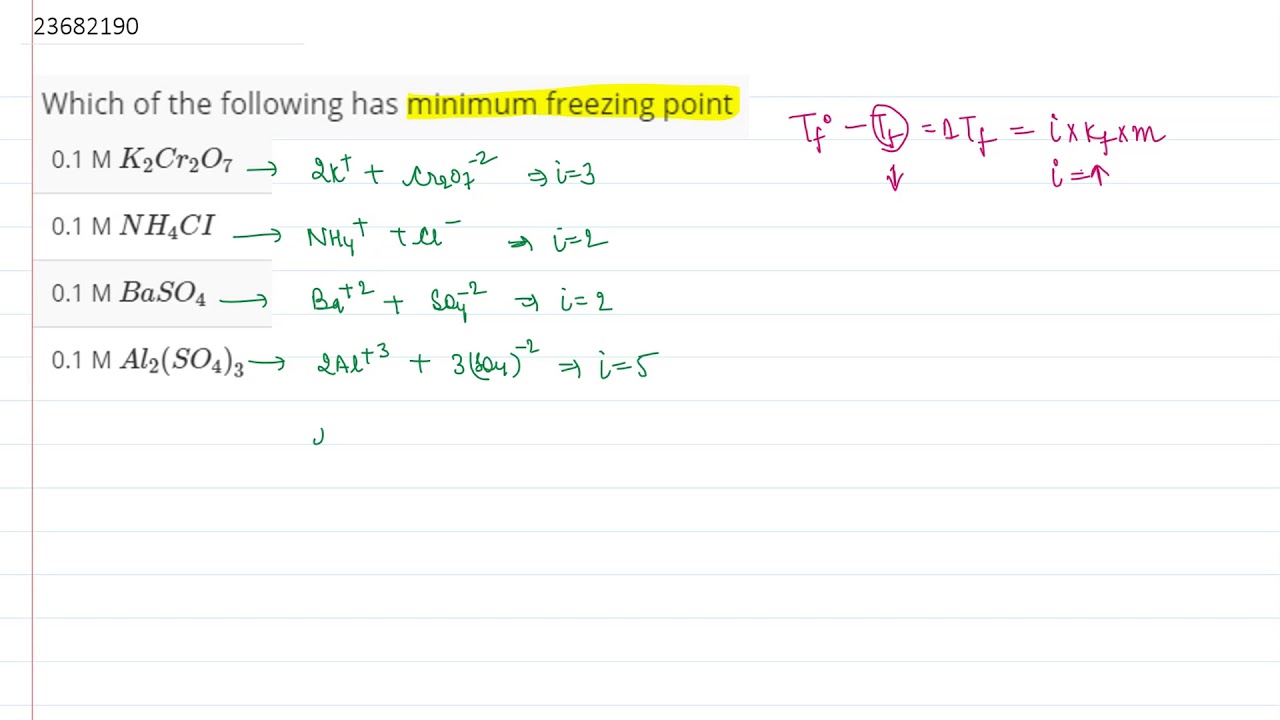 23682190
Which of the following has minimum freezing point
T_f° − T_f = ΔT_f = i × k_f × m
↓ i = ↑
0.1 M K₂Cr₂O₇ → 2K⁺ + Cr₂O₇⁻² ⇒ i=3
0.1 M NH₄CI → NH₄⁺ + Cl⁻ ⇒ i=2
0.1 M BaSO₄ → Ba⁺² + SO₄⁻² ⇒ i=2
0.1 M Al₂(SO₄)₃ → 2Al⁺³ + 3(SO₄)⁻² ⇒ i=5